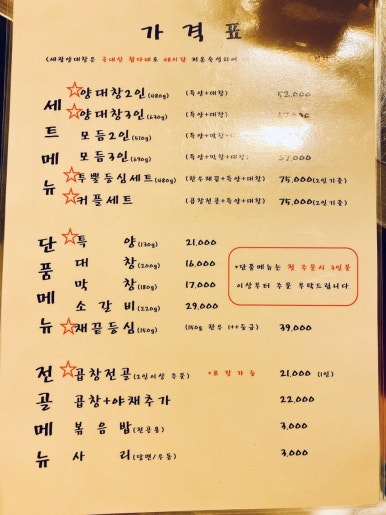 가 격 표
(세광양대창은 국내산 참다래로 48시간 저온숙성하여
세트메뉴
☆양대창2인(480g) (특양+대창) 52,000
☆양대창3인(630g) (특양+대창)
모듬2인(510g) (특양+막창+대창)
모듬3인(690g) (특양+막창+대창) 67,000
☆투뿔등심세트(480g) (한우채끝+특양+대창) 75,000(2인기준)
☆커플세트 (곱창전골+특양+대창) 75,000(2인기준)
단품메뉴
☆특 양(130g) 21,000
대 창(200g) 16,000
막 창(180g) 17,000
소 갈 비(220g) 29,000
☆채끝등심(140g) (140g 한우 1++등급) 39,000
*단품메뉴는 첫 주문시 3인분
이상부터 주문 부탁드립니다
전골메뉴
☆곱창전골(2인이상 주문) *포장가능 21,000 (1인)
곱창+야채추가 22,000
볶음밥(전골용) 3,000
사 리(당면/우동) 3,000